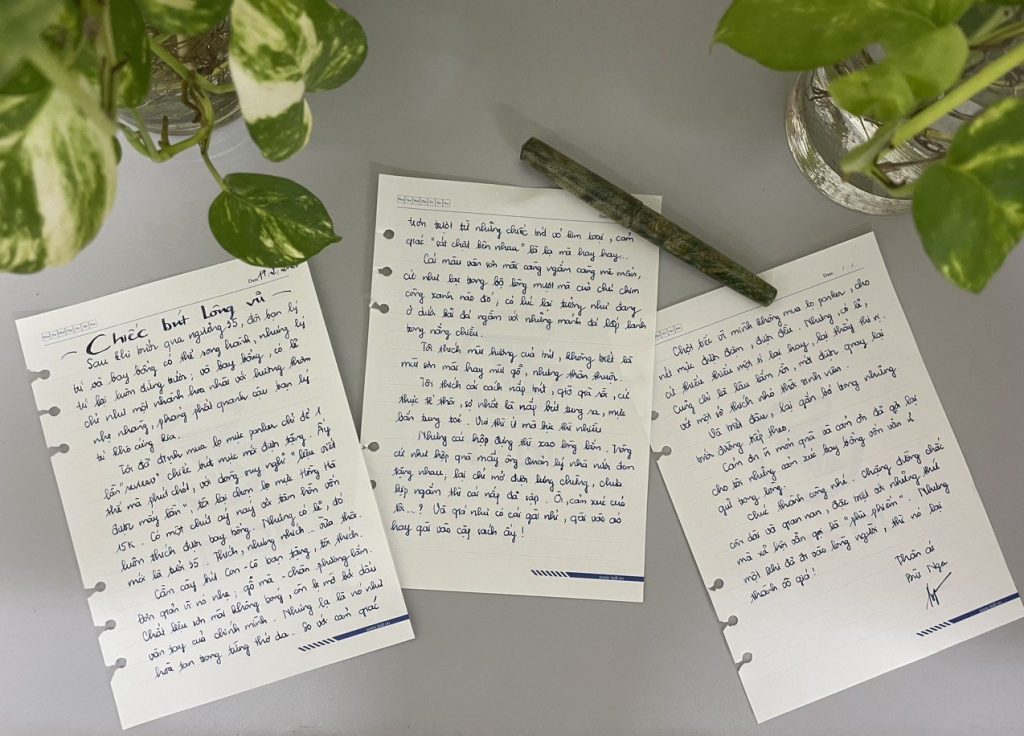 Chiếc bút lông vũ
Sau khi bước qua ngưỡng 35, đôi bạn lý
trí và bay bổng có thể song hành, nhưng lý
trí lại luôn đứng trước; và bay bổng, có lẽ
chỉ như một nhành hoa nhài với hương thơm
nhẹ nhàng, phảng phất quanh câu bạn lý
trí khô cứng kia.
Tôi đã định mua lọ mực parker chỉ để 1
lần " " chiếc bút mực mới được tặng. Ấy
thế mà phút chót, với dòng suy nghĩ " liệu viết
được mấy lần", tôi lại chọn lọ mực Hồng Hà
15K. Có một chút áy náy với tâm hồn vốn
luôn thích được bay bổng. Nhưng có lẽ, đó
mới là tuổi 35. Thích, nhưng thích vừa thôi.
Cầm cây bút Con-cò bạn tặng, tôi thích.
Đơn giản vì nó nhẹ; gỗ mà - chân phương lắm.
Chất liệu sơn mài không bong, còn bị mờ bởi dấu
vân tay của chính mình. Nhưng lạ là nó như
hoà tan trong từng thớ da. So với cảm giác
trơn trượt từ những chiếc bút vỏ kim loại, cảm
giác "sát chặt bên nhau" là lạ mà hay hay...
Cái màu vân sơn mài càng ngắm càng mê mẩn,
cứ như lạc trong bộ lông mượt mà của chú chim
công xanh nào đó, có lúc lại tưởng như đang
ở dưới bãi đá ngầm với những mảnh đá lấp lánh
trong nắng chiều.
Tôi thích mùi hương của bút, không biết là
mùi sơn mài hay mùi gỗ, nhưng thân thuộc.
Tôi thích cái cách nắp bút, giờ già rồi, cứ
thực tế thôi, sợ nhất là nắp bút tung ra, mực
bắn tung toé. Vui thì ít mà bực thì nhiều
Nhưng các hộp đựng thì xao lòng lắm. Trông
cứ như hộp quà mấy ông quản lý nhà nước đem
tặng nhau, lại chỉ mở được lưng chừng, chưa
kịp ngắm thì cái nắp đã sập. Ôi, cảm xúc của
tôi...? Và giá như có cái gài nhỉ, gài vào áo
hay gài vào cặp sách ấy!
Chợt tiếc vì mình không mua lọ parker, cho
nét mực được đậm, được đều. Nhưng có lẽ,
cứ thiếu thiếu một xí lại hay, lại thấy thú vị.
Cũng chỉ là lâu lắm rồi, mới được quay lại
với một sở thích nhỏ thời sinh viên.
Và biết đâu, lại gắn bó trong những
bước đường tiếp theo.
Cảm ơn vì món quà và cảm ơn đã gợi lại
cho tôi những cảm xúc bay bổng vốn vẫn ủ
giữ trong lòng.
Chúc thành công nhé. Chặng đường chắc
còn dài và gian nan, đặc biệt với những thứ
mà xã hội vẫn gọi là "phù phiếm". Nhưng
một khi đã đi vào lòng người, thì nó lại
thành vô giá!
Thân ái
Bùi Nga